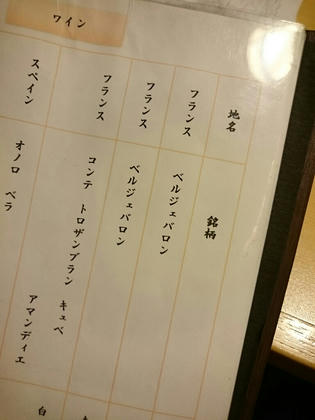 ワイン
地名
銘柄
フランス
ベルジェバロン
フランス
ベルジェバロン
フランス
コンテ トロザンブラン キュベ
アマンディエ
スペイン
オノロ ベラ
白